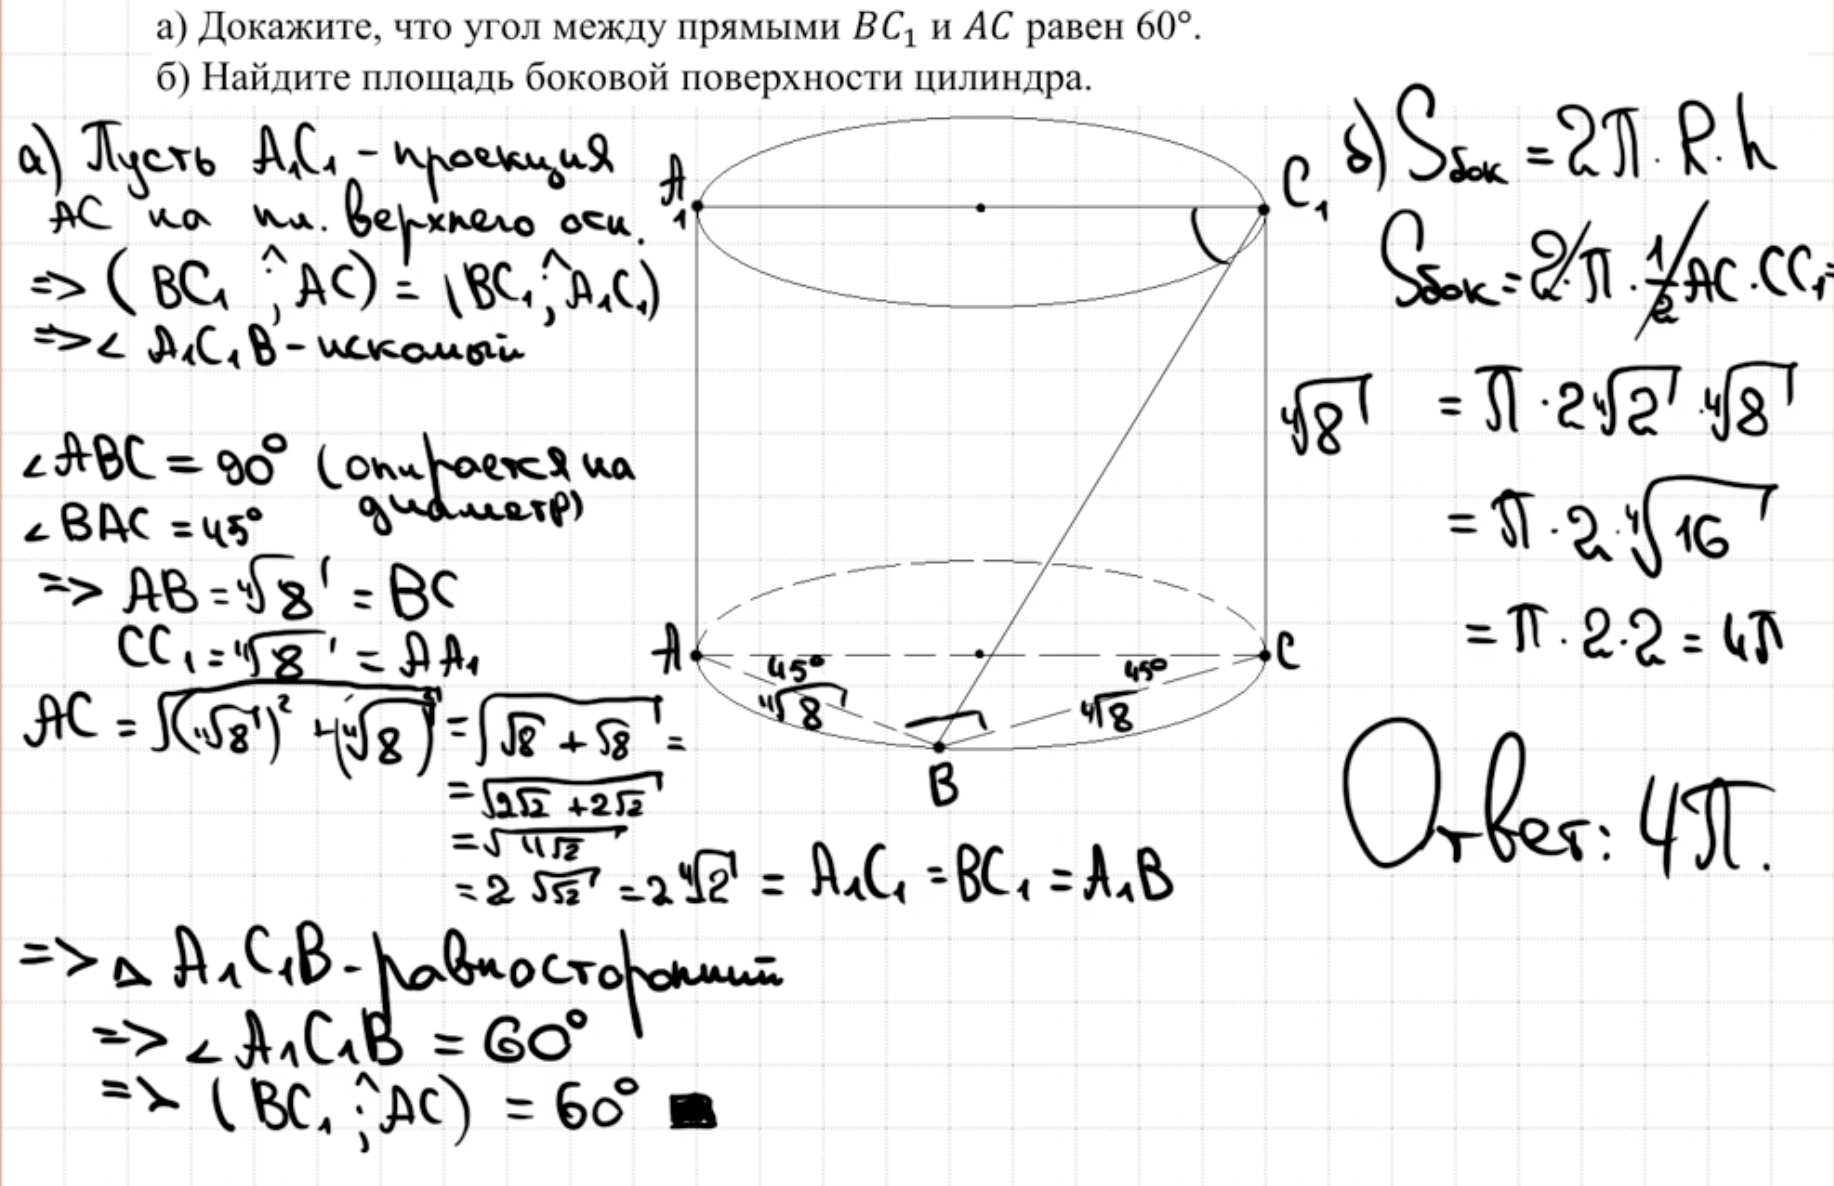 а) Докажите, что угол между прямыми BC₁ и AC равен 60°.
б) Найдите площадь боковой поверхности цилиндра.
а) Пусть A₁C₁ - проекция
AC на пл. верхнего осн.
=> (BC₁ ;^ AC) = (BC₁ ;^ A₁C₁)
=> ∠ A₁C₁B - искомый
∠ABC = 90° (опирается на
диаметр)
∠BAC = 45°
=> AB = ⁴√8 = BC
CC₁ = ⁴√8 = AA₁
AC = √((⁴√8)² + (⁴√8)²) = √(√8 + √8) =
= √(2√2 + 2√2)
= √(4√2)
= 2√(√2) = 2⁴√2 = A₁C₁ = BC₁ = A₁B
=> Δ A₁C₁B - равносторонний
=> ∠ A₁C₁B = 60°
=> (BC₁ ;^ AC) = 60° ■
A₁
C₁
⁴√8
A
45°
45°
C
⁴√8
⁴√8
B
б) Sбок = 2π · R · h
Sбок = 2 · π · 1/2 AC · CC₁ =
= π · 2⁴√2 · ⁴√8
= π · 2 · ⁴√16
= π · 2 · 2 = 4π
Ответ: 4π.